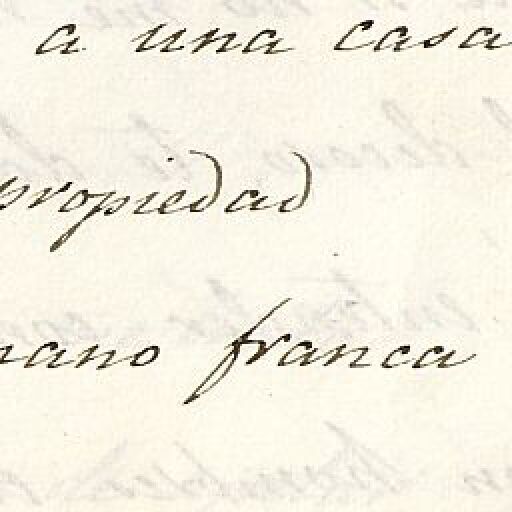 a una casa
propiedad
mano franca